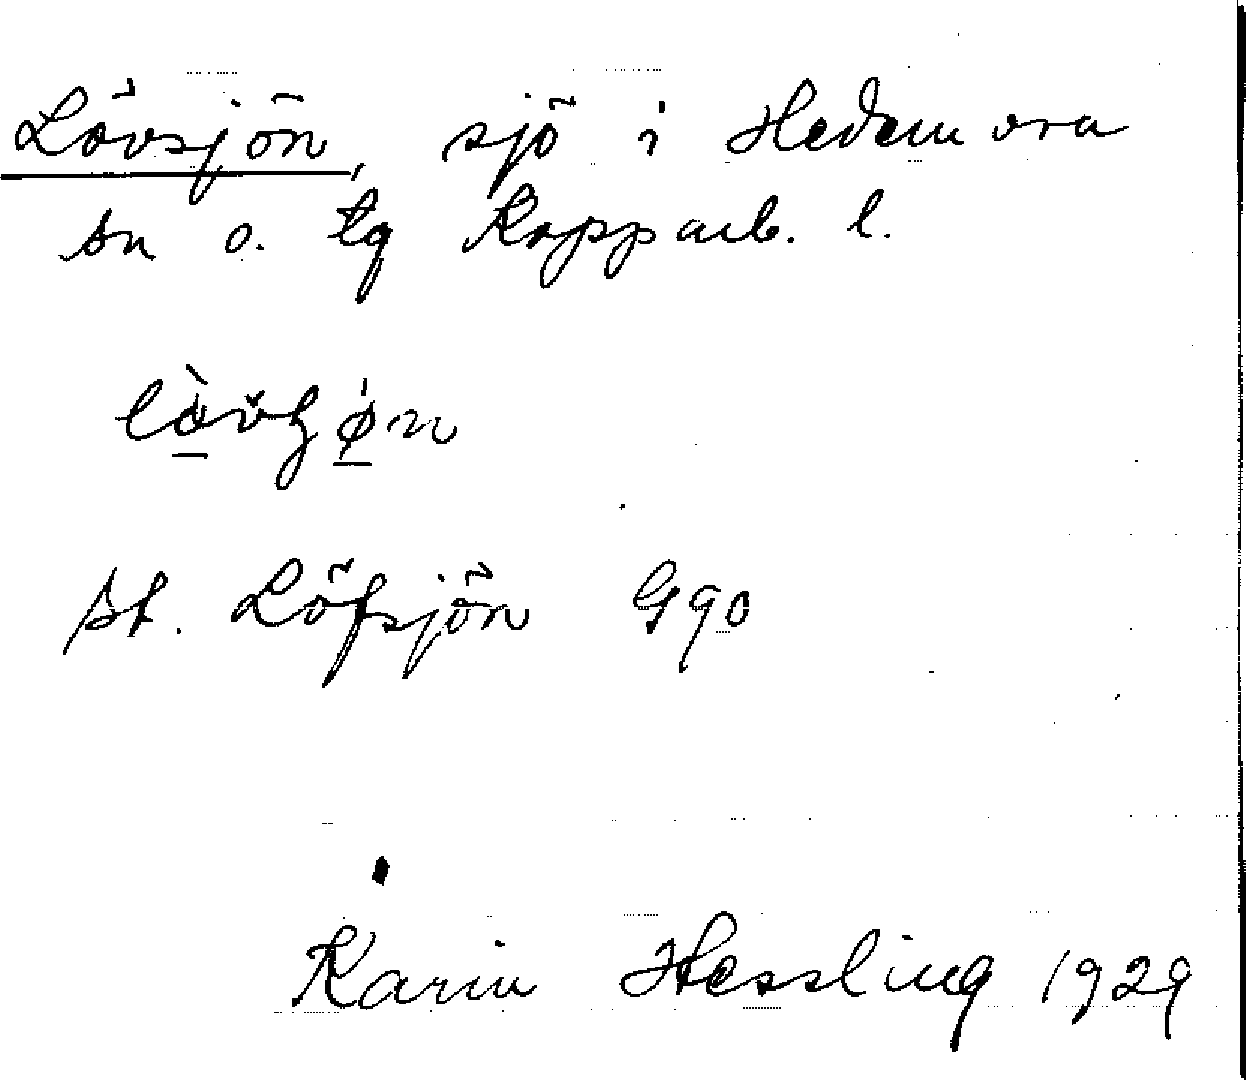 Lövsjön, sjö i Hedemora
sn o. tg Kopparb. l.
st. Löfsjön G 90
Karin Hessling 1929